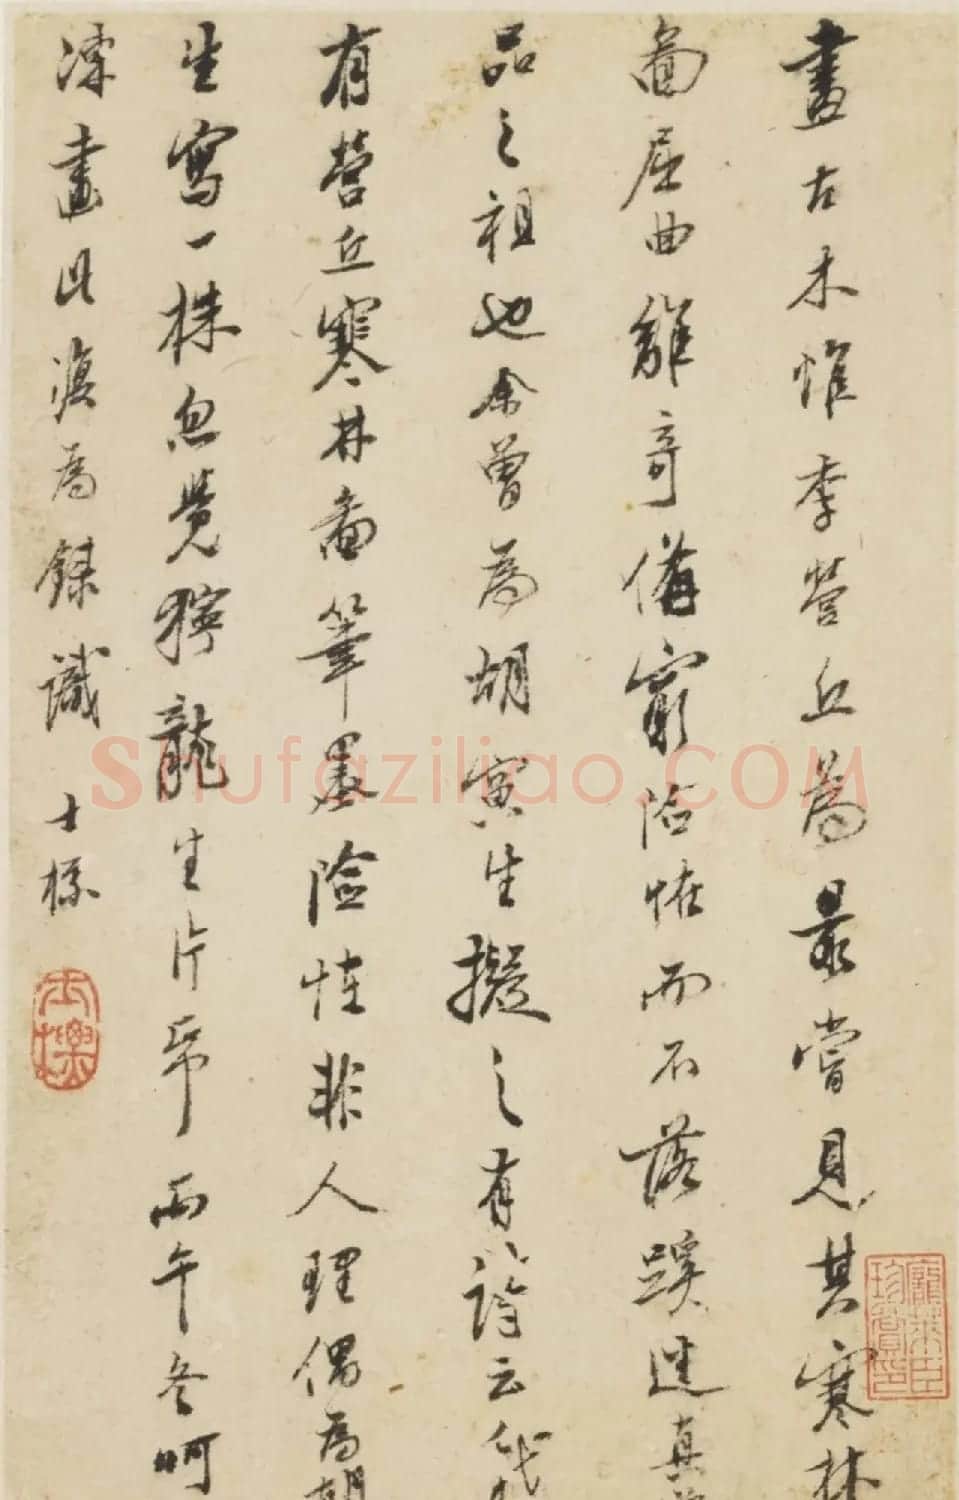 畫古木惟李營丘為最嘗見其寒林
啚屈曲離奇備窮險怪而不落蹊逕真
品之祖也余曾為胡寅生擬之有詩云我
有營丘寒林啚筆墨險怪非人理偶為胡
生寫一株忽覺獰龍生片帋丙午冬呵
凍畫此復為錄識 士標
士標
龐萊臣珍賞印
Shufaziliao.COM